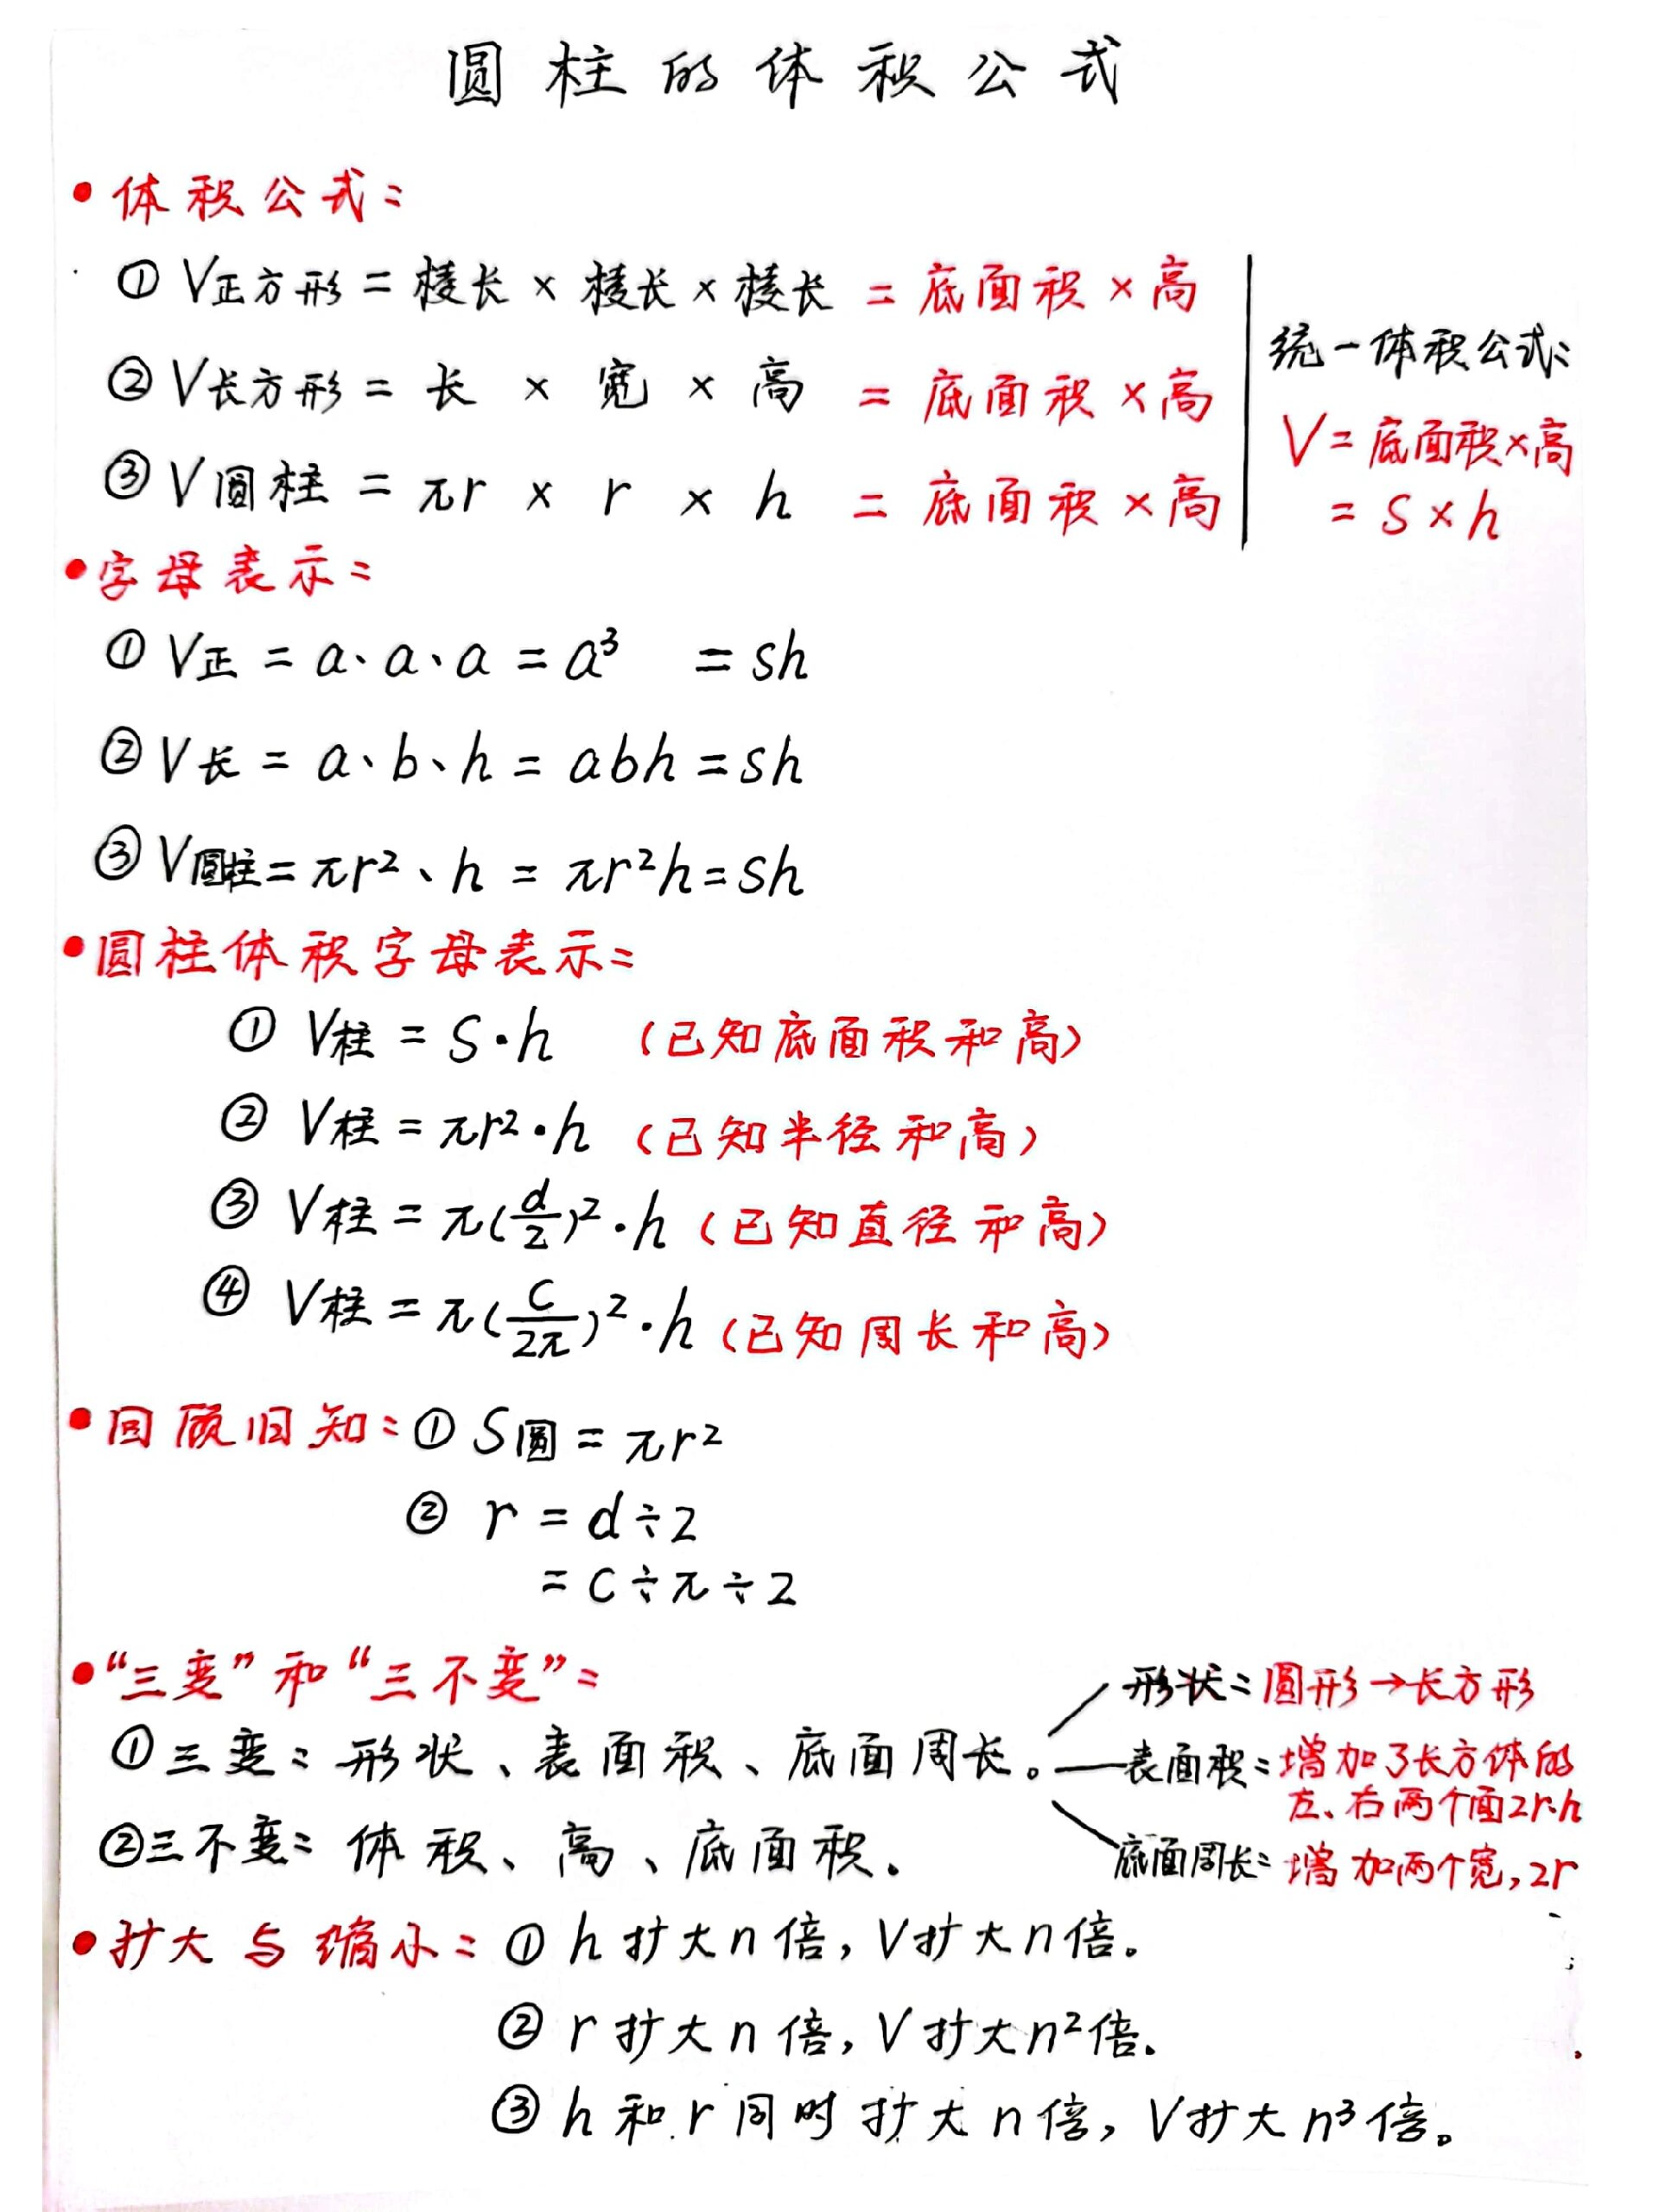 圆柱的体积公式
• 体积公式:
① V正方形 = 棱长 × 棱长 × 棱长 = 底面积 × 高
② V长方形 = 长 × 宽 × 高 = 底面积 × 高
③ V圆柱 = πr × r × h = 底面积 × 高
统一体积公式:
V = 底面积×高
= S × h
• 字母表示:
① V正 = a、a、a = a³ = sh
② V长 = a、b、h = abh = sh
③ V圆柱 = πr²、h = πr²h = sh
• 圆柱体积字母表示:
① V柱 = S·h (已知底面积和高)
② V柱 = πr²·h (已知半径和高)
③ V柱 = π(d/2)²·h (已知直径和高)
④ V柱 = π(C/2π)²·h (已知周长和高)
• 回顾旧知: ① S圆 = πr²
② r = d÷2
= C÷π÷2
• “三变”和“三不变”:
① 三变: 形状、表面积、底面周长。
形状: 圆形→长方形
表面积: 增加了长方体的
左、右两个面2r·h
底面周长: 增加两个宽,2r
② 三不变: 体积、高、底面积.
• 扩大与缩小: ① h扩大n倍, V扩大n倍。
② r扩大n倍, V扩大n²倍.
③ h和r同时扩大n倍, V扩大n³倍。